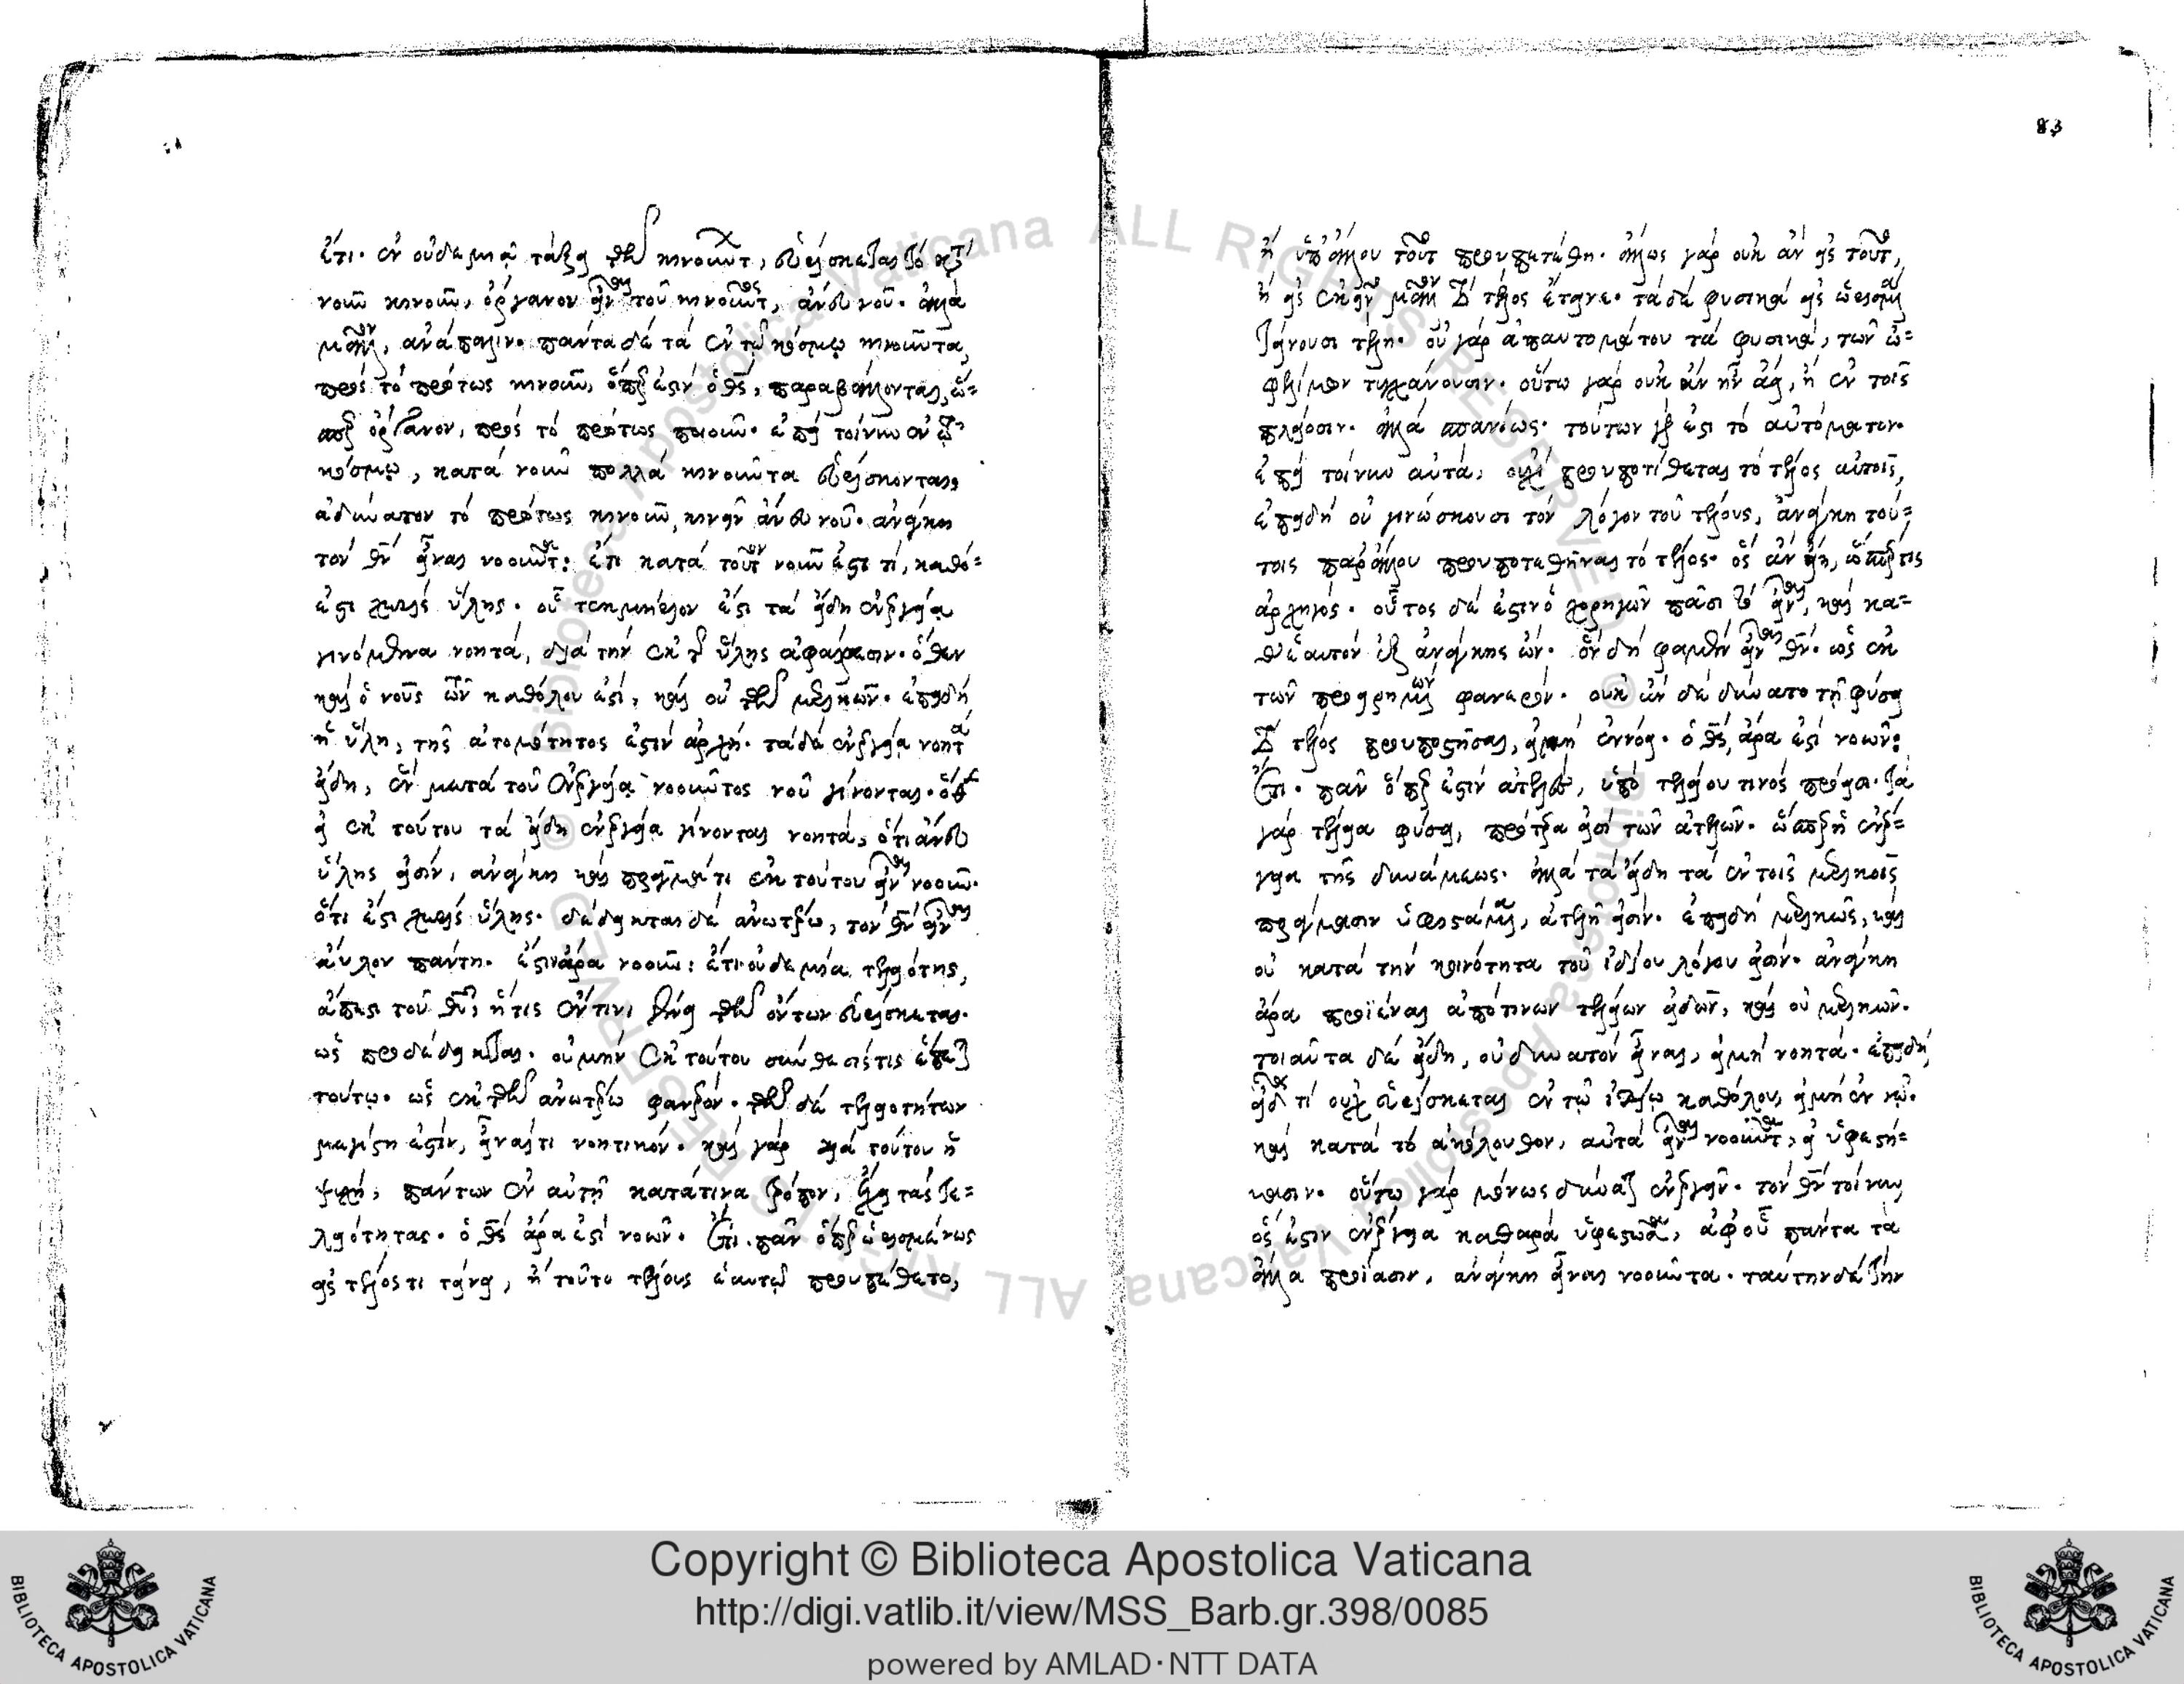 83
ἔτι. ἐν οὐδεμιᾷ τάξει τῶν κινούντων, εὑρίσκεται τὸ κατὰ
νοῦν κινοῦν, ὄργανον εἶναι τοῦ κινοῦντος ἄνευ νοῦ. ἀλλὰ
μᾶλλον, ἀνάπαλιν. πάντα δὲ τὰ ἐν τῷ κόσμῳ κινοῦντα,
πρὸς τὸ πρώτως κινοῦν, ὅπερ ἐστὶν ὁ θεός, παραβάλλονται, ὥσ=
περ ὄργανον, πρὸς τὸ πρώτως ποιοῦν. ἐπεὶ τοίνυν ἐν τῷ
κόσμῳ, κατὰ νοῦν πολλὰ κινοῦντα εὑρίσκονται,
ἀδύνατον τὸ πρώτως κινοῦν, κινεῖν ἄνευ νοῦ. ἀνάγκη
τὸν θεὸν εἶναι νοοῦντα: ἔτι κατὰ τοῦτον νοοῦν ἐστί τι, καθό=
ἐστι χωρὶς ὕλης. οὗ τεκμήριον ἐστὶ τὰ εἴδη ἐνεργείᾳ
γινόμενα νοητά, διὰ τὴν ἐκ τῆς ὕλης ἀφαίρεσιν. ὅθεν
καὶ ὁ νοῦς τῶν καθόλου ἐστί, καὶ οὐ τῶν μερικῶν. ἐπειδὴ
ἡ ὕλη, τῆς ἀτομότητος ἐστὶν ἀρχή. τὰ δὲ ἐνεργείᾳ νοητὰ
εἴδη, ἓν μετὰ τοῦ ἐνεργείᾳ νοοῦντος νοῦ γίνονται. ὅθεν
εἰ ἐκ τούτου τὰ εἴδη ἐνεργείᾳ γίνονται νοητά, ὅτι ἄνευ
ὕλης εἰσίν, ἀνάγκη καὶ πρᾶγμά τι ἐκ τούτου εἶναι νοοῦν.
ὅτι ἐστὶ χωρὶς ὕλης. δέδεικται δὲ ἀνωτέρω, τὸν θεὸν εἶναι
ἄυλον πάντη. ἔστιν ἄρα νοοῦν: ἔτι οὐδεμία τελειότης,
ἄπεστι τοῦ θεοῦ, ἥτις ἔν τινι γένει τῶν ὄντων εὑρίσκεται.
ὡς προδέδεικται. οὐ μὴν ἐκ τούτου σύνθεσίς τις ἕπεται
τούτῳ. ὡς ἐκ τῶν ἀνωτέρω φανερόν. τῶν δὲ τελειοτήτων
μεγίστη ἐστίν, εἶναί τι νοητικόν. καὶ γὰρ διὰ τούτου ἡ
ψυχή, πάντων ἐν αὐτῇ κατά τινα τρόπον, ἔχει τὰς τε=
λειότητας. ὁ θεὸς ἄρα ἐστὶ νοῶν. ἔτι. πᾶν ὅπερ ὡρισμένως
εἰς τέλος τι τείνει, ἢ τοῦτο τέλους ἑαυτῷ προυπέθετο,
ἢ ὑπ' ἄλλου τοῦτο προυπετέθη. ἄλλως γὰρ οὐκ ἂν εἰς τοῦτο,
ἢ εἰς ἐκεῖνο μᾶλλον τὸ τέλος ἔτεινε. τὰ δὲ φυσικὰ εἰς ὡρισμένα
τείνουσι τέλη. οὐ γὰρ ἀπαυτομάτου τὰ φυσικά, τῶν ὠ=
φελίμων τυγχάνουσιν. οὕτω γὰρ οὐκ ἂν ἦν ἀεί, ἢ ἐν τοῖς
πλείοσιν. ἀλλὰ σπανίως. τούτων γάρ ἐστι τὸ αὐτόματον.
ἐπεὶ τοίνυν αὐτά, οὐχὶ προυποτίθεται τὸ τέλος αὑτοῖς,
ἐπειδὴ οὐ γινώσκουσι τὸν λόγον τοῦ τέλους, ἀνάγκη τού=
τοις παρ' ἄλλου προυποτεθῆναι τὸ τέλος. ὃς ἂν εἴη, ὥσπερ τις
ἀρχηγός. οὗτος δέ ἐστιν ὁ χορηγῶν πᾶσι τὸ εἶναι, καὶ κα=
θ' ἑαυτὸν ἐξ ἀνάγκης ὤν. ὃν δή φαμεν εἶναι θεόν. ὡς ἐκ
τῶν προειρημένων φανερόν. οὐκ ἂν δὲ δύναιτο τῇ φύσει
τὸ τέλος προυποστῆσαι, εἰ μὴ ἐννόει. ὁ θεὸς ἄρα ἐστὶ νοῶν:
ἔτι. πᾶν ὅπερ ἐστὶν ἀτελές, ὑπὸ τελείου τινὸς πρόεισι. τὰ
γὰρ τέλεια φύσει, πρότερά εἰσι τῶν ἀτελῶν. ὥσπερ ἡ ἐνέρ=
γεια τῆς δυνάμεως. ἀλλὰ τὰ εἴδη τὰ ἐν τοῖς μερικοῖς
πράγμασιν ὑφιστάμενα, ἀτελῆ εἰσίν. ἐπειδὴ μερικῶς, καὶ
οὐ κατὰ τὴν κοινότητα τοῦ ἰδίου λόγου εἰσίν. ἀνάγκη
ἄρα προϊέναι ἀπό τινων τελείων εἰδῶν, καὶ οὐ μερικῶν.
τοιαῦτα δὲ εἴδη, οὐ δυνατὸν εἶναι, εἰ μὴ νοητά. ἐπειδὴ
εἶδός τι οὐχ εὑρίσκεται ἐν τῷ ἰδίῳ καθόλου, εἰ μὴ ἐν νῷ.
καὶ κατὰ τὸ ἀκόλουθον, αὐτὰ εἶναι νοοῦντα, εἰ ὑφεστή=
κασιν. οὕτω γὰρ μόνως δύναται ἐνεργεῖν. τὸν θεὸν τοίνυν
ὅς ἐστιν ἐνέργεια καθαρὰ ὑφεστῶσα, ἀφ' οὗ πάντα τὰ
ἄλλα προΐασιν, ἀνάγκη εἶναι νοοῦντα. ταύτην δὲ τὴν
Copyright © Biblioteca Apostolica Vaticana
http://digi.vatlib.it/view/MSS_Barb.gr.398/0085
powered by AMLAD·NTT DATA